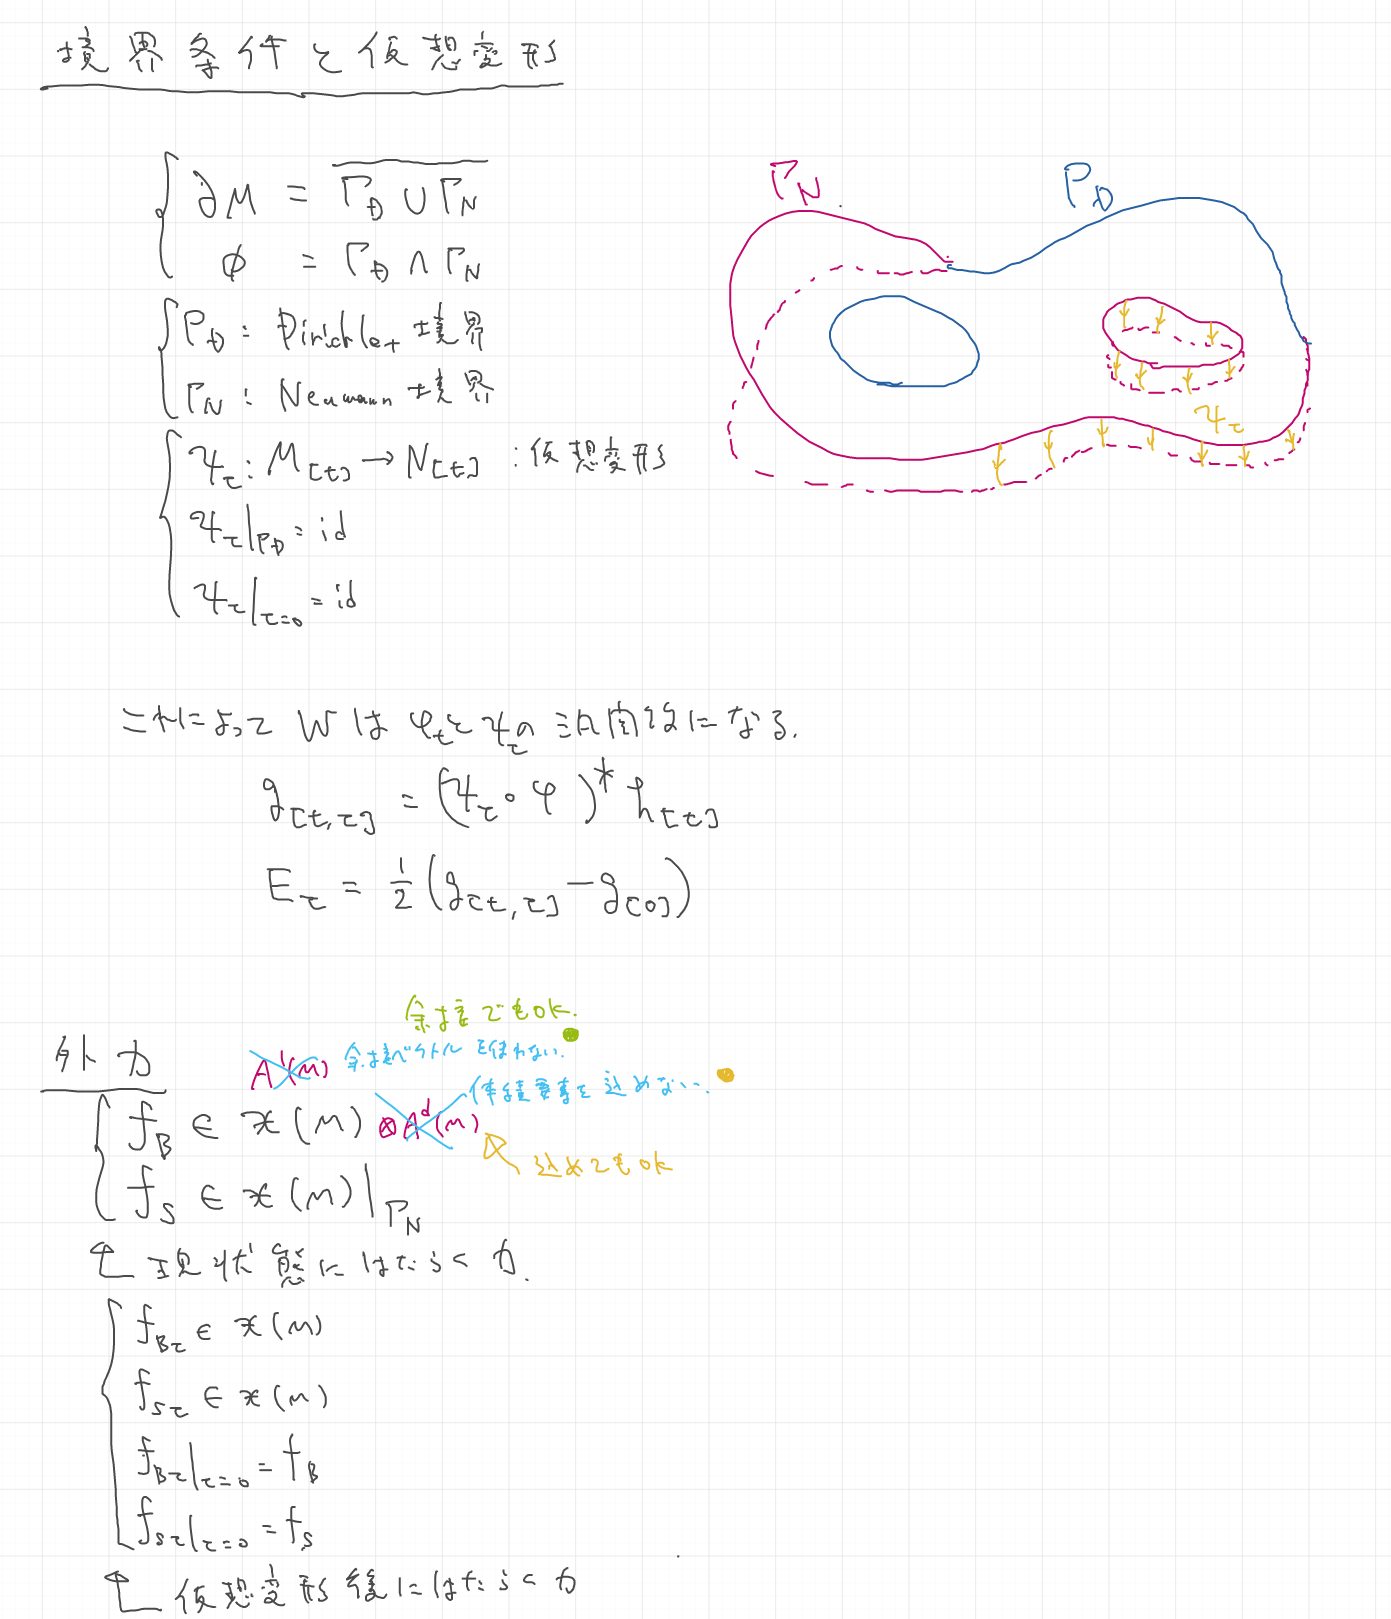 境界条件と仮想変形
∂M = \overline{Γ_D ∪ Γ_N}
∅ = Γ_D ∩ Γ_N
Γ_D : Dirichlet 境界
Γ_N : Neumann 境界
ψ_τ : M[t] → N[t] : 仮想変形
ψ_τ|_{Γ_D} = id
ψ_τ|_{τ=0} = id
Γ_N
Γ_D
ψ_τ
これによって W は φ_t と ψ_τ の汎関数になる.
g[t,τ] = (ψ_τ∘φ)^* h[t]
E_τ = 1/2 (g[t,τ] − g[0])
外力
余接でもok.
A^1(M) 余接ベクトルを使わない.
体積要素を込めない.
f_B ∈ 𝔛(M) ⊗A^d(M)
込めてもok
f_S ∈ 𝔛(M)|_{Γ_N}
現状態にはたらく力.
f_{Bτ} ∈ 𝔛(M)
f_{Sτ} ∈ 𝔛(M)
f_{Bτ}|_{τ=0} = f_B
f_{Sτ}|_{τ=0} = f_S
仮想変形後にはたらく力